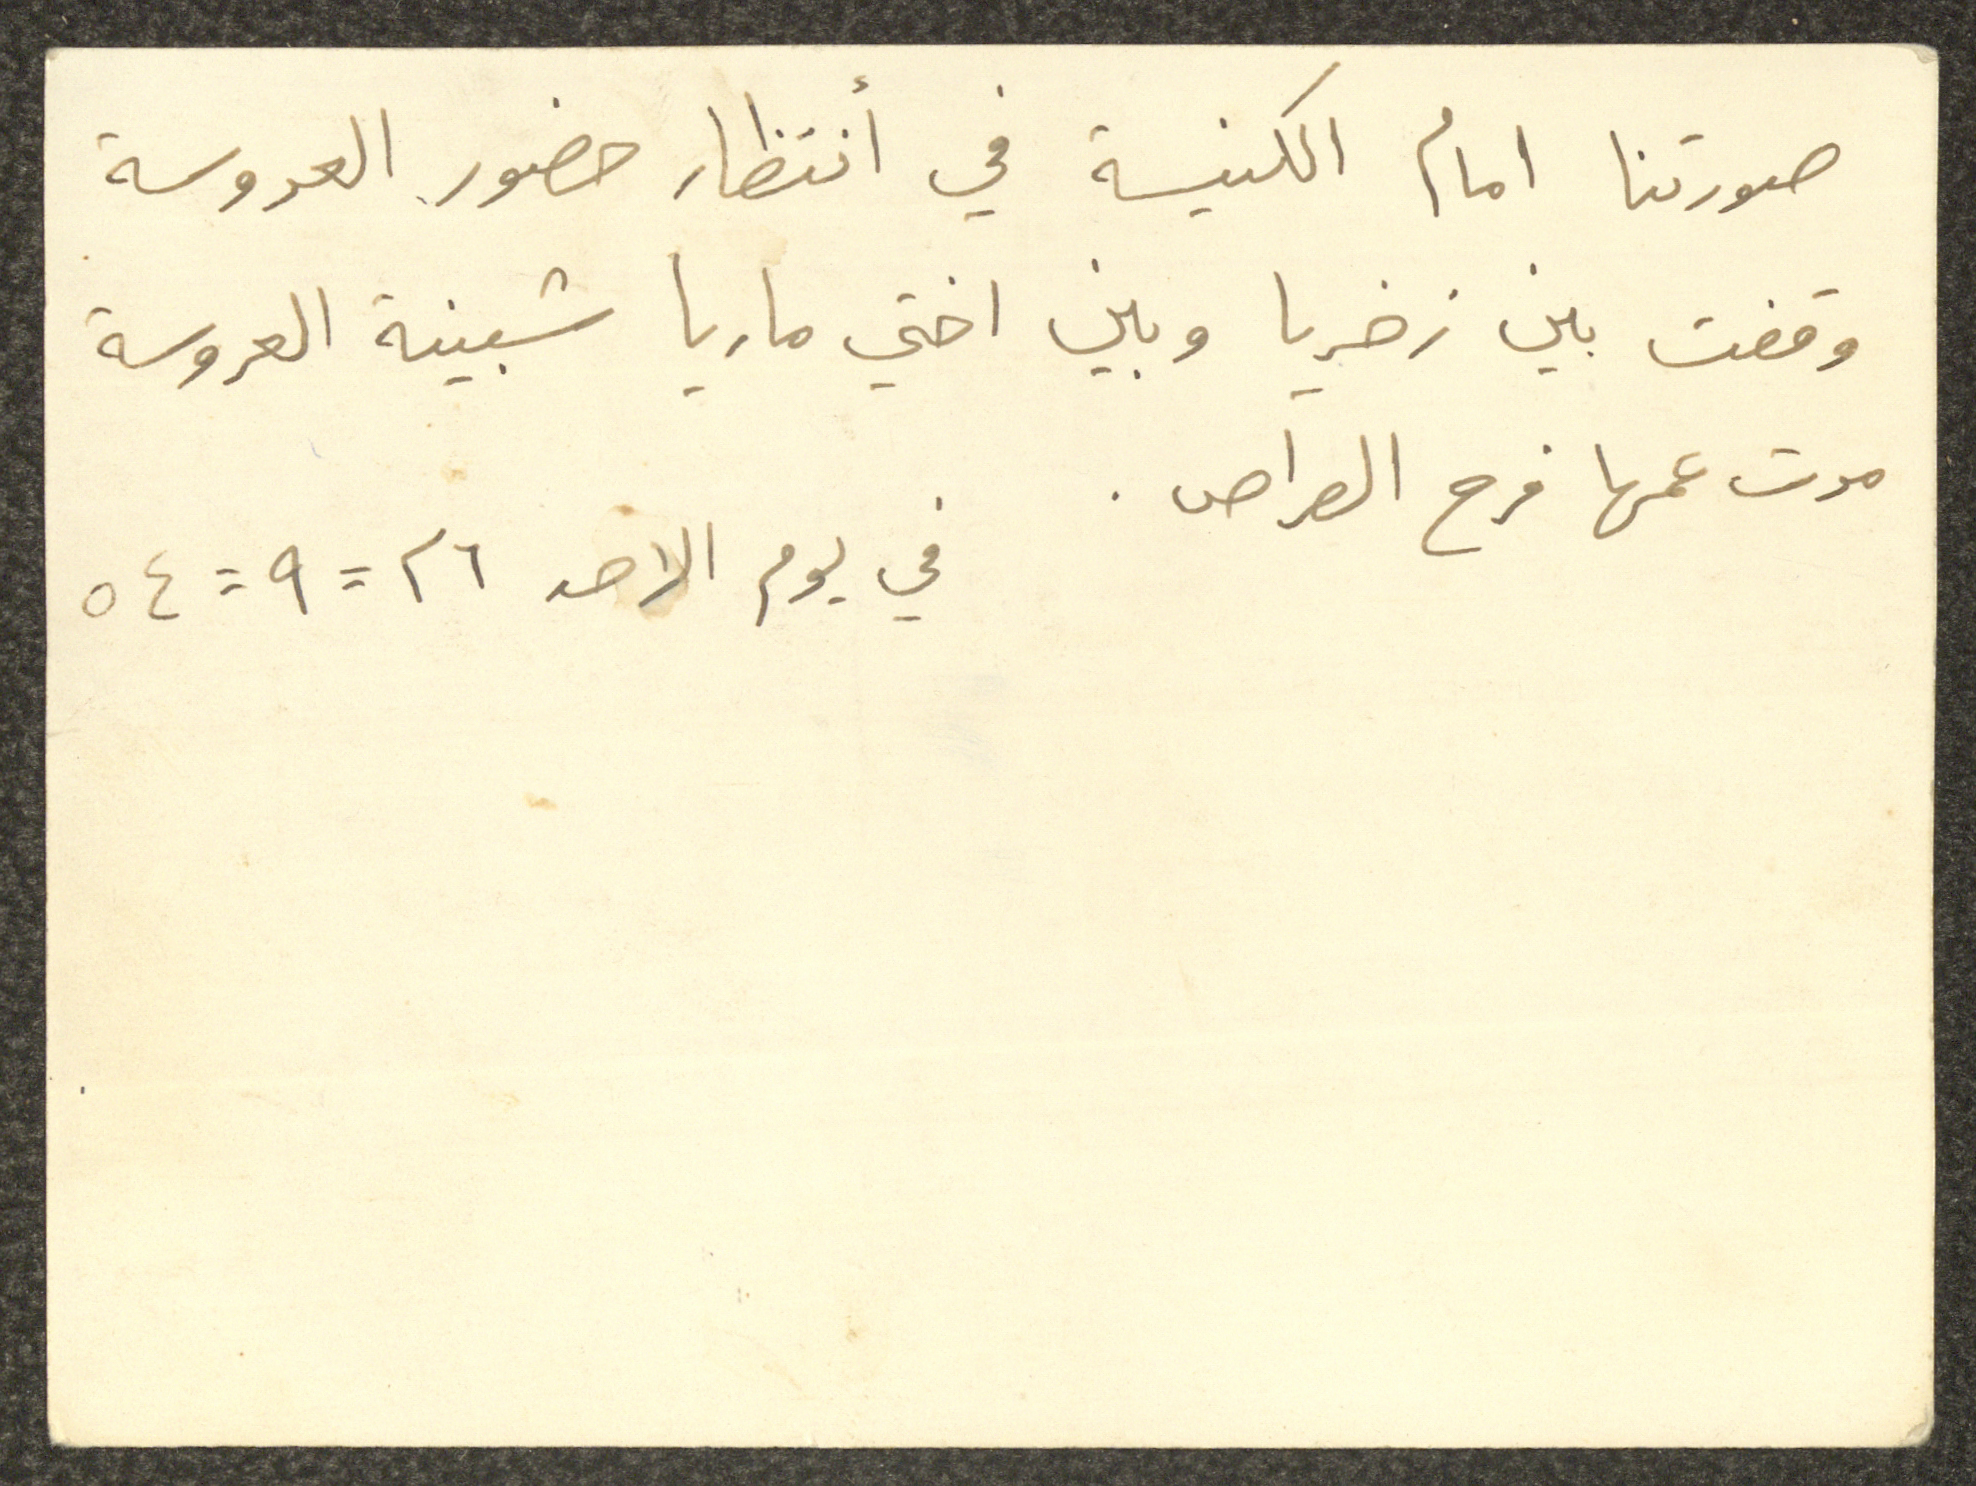 صورتنا امام الكنيسة في أنتظار حضور العروسة
وقفت بين زخريا وبين اختي ماريا شبينة العروسة
مرت عمها فرح الهراص .
في يوم الاحد ٢٦ = ٩ = ٥٤